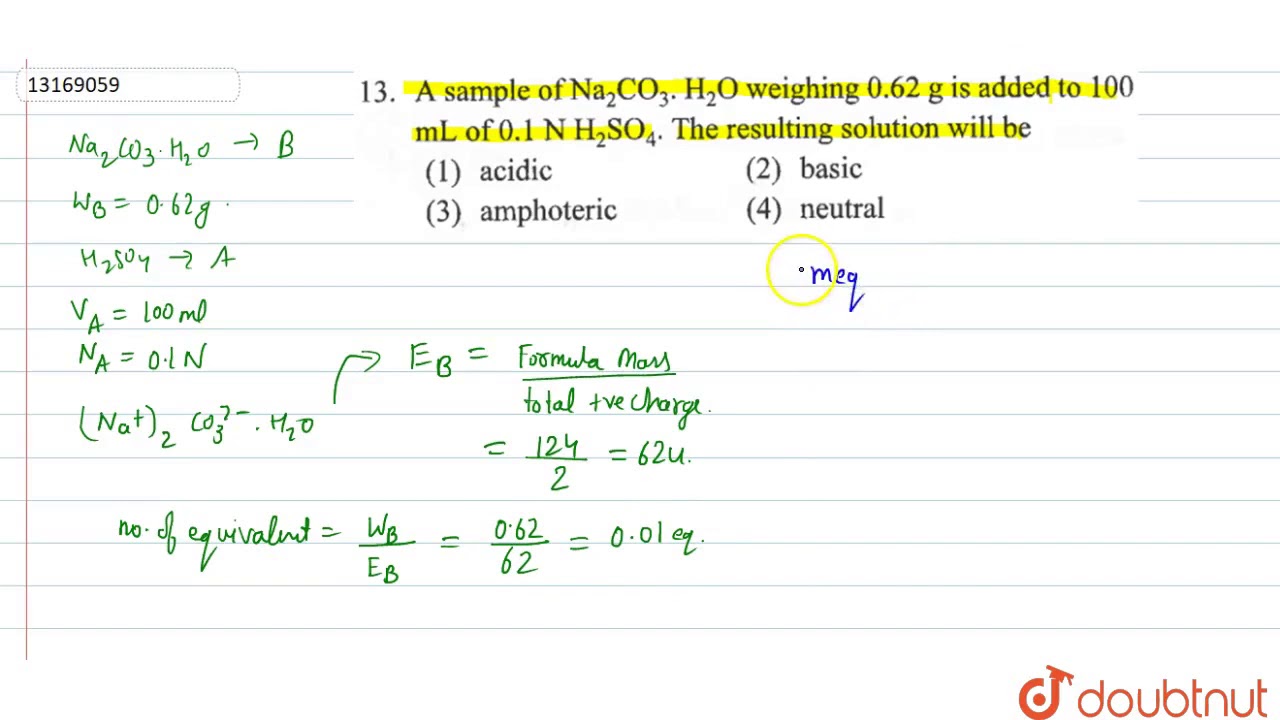 13169059
13. A sample of Na₂CO₃. H₂O weighing 0.62 g is added to 100
mL of 0.1 N H₂SO₄. The resulting solution will be
(1) acidic (2) basic
(3) amphoteric (4) neutral
Na₂CO₃·H₂O → B
W_B = 0.62g.
H₂SO₄ → A
V_A = 100ml
N_A = 0.1N
(Na+)₂ CO₃²⁻. H₂O
E_B = Formula Mass
total +ve charge.
= 124/2 = 62u.
no. of equivalent = W_B/E_B = 0.62/62 = 0.01 eq.
meq
doubtnut